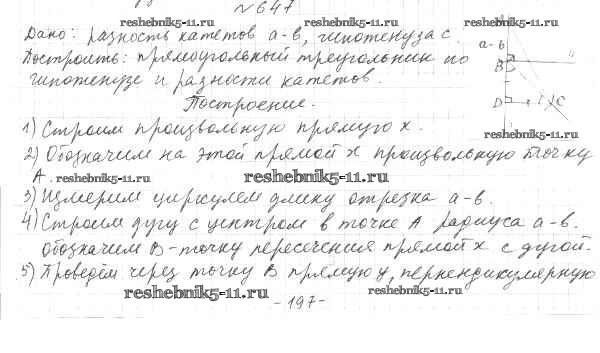 №647
reshebnik5-11.ru
reshebnik5-11.ru
Дано: разность катетов а-в, гипотенуза с.
Построить: прямоугольный треугольник по
гипотенузе и разности катетов.
Построение.
a-b
B
D
C
reshebnik5-11.ru
1) Строим произвольную прямую х.
2) Обозначим на этой прямой х произвольную точку
А.
reshebnik5-11.ru
reshebnik5-11.ru
3) Измерим циркулем длину отрезка а-в.
4) Строим дугу с центром в точке А радиуса а-в.
обозначим В-точку пересечения прямой х с дугой.
5) Проведём через точку В прямую у, перпендикулярную
reshebnik5-11.ru
-197-
reshebnik5-11.ru